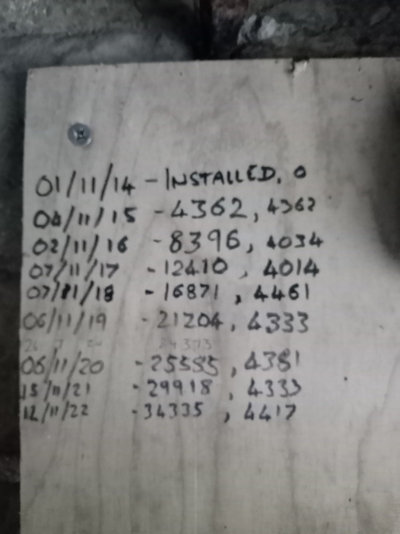 01/11/14 - INSTALLED, 0
04/11/15 - 4362, 4362
02/11/16 - 8396, 4034
07/11/17 - 12410, 4014
07/11/18 - 16871, 4461
06/11/19 - 21204, 4333
06/11/20 - 25585, 4381
15/11/21 - 29918, 4333
12/11/22 - 34335, 4417